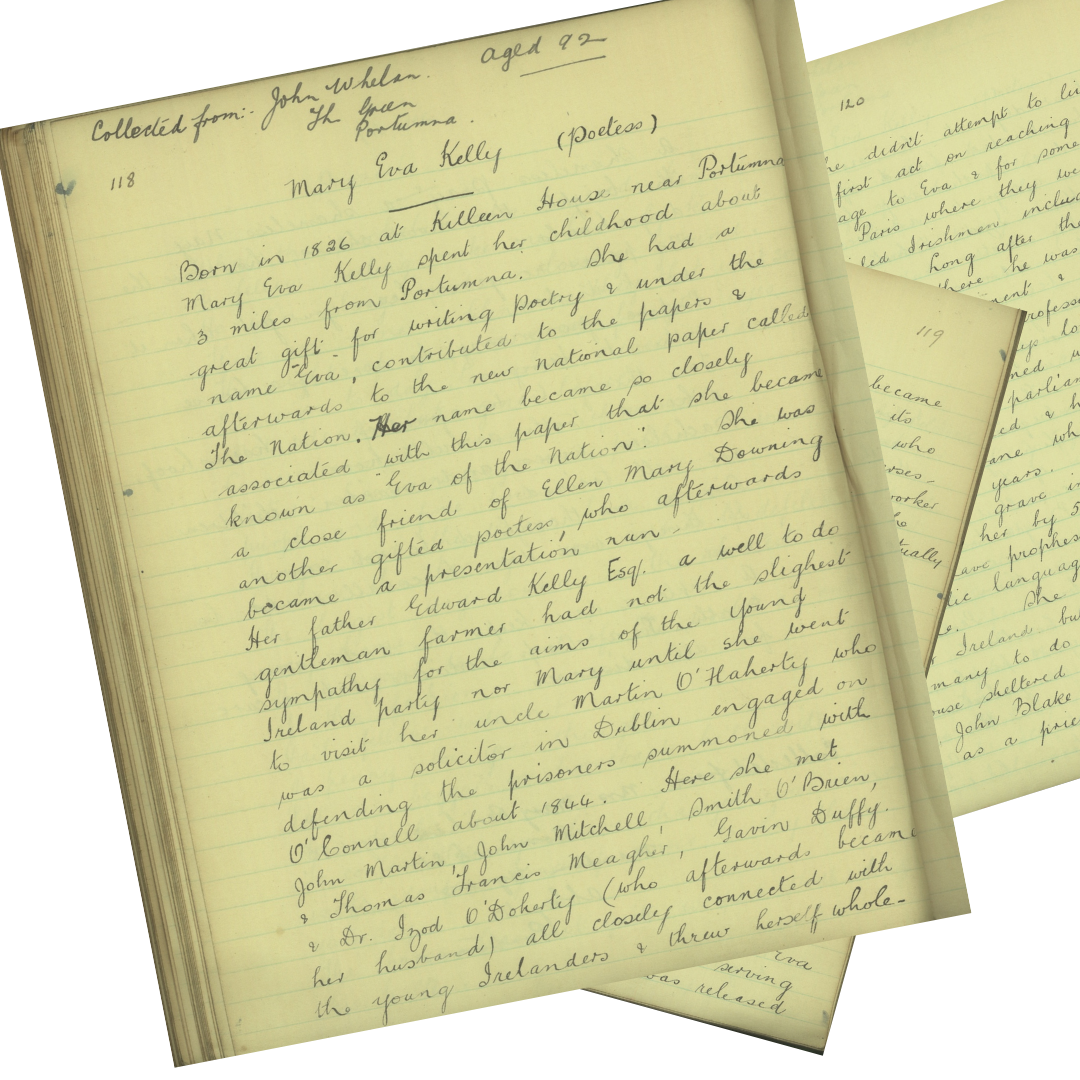 Collected from:- John Whelan. aged 92
Th Green
Portumna.
118
Mary Eva Kelly (Poetess)
Born in 1826 at Killeen House near Portumna
Mary Eva Kelly spent her childhood about
3 miles from Portumna. She had a
great gift for writing poetry & under the
name "Eva", contributed to the papers &
afterwards to the new national paper called
The Nation. Her name became so closely
associated with this paper that she became
known as "Eva of the Nation". She was
a close friend of Ellen Mary Downing
another gifted poetess, who afterwards
became a presentation nun -
Her father Edward Kelly Esq. a well to do
gentleman farmer had not the slightest
sympathy for the aims of the Young
Ireland party nor Mary until she went
to visit her uncle Martin O'Flaherty who
was a solicitor in Dublin engaged on
defending the prisoners summoned with
O'Connell about 1844. Here she met
John Martin, John Mitchell, Smith O'Brien,
& Thomas Francis Meagher, Gavin Duffy.
& Dr. Izod O'Doherty (who afterwards became
her husband) all closely connected with
the young Irelanders & threw herself whole-
119
became
its
who
worker
Eva
serving
was released
120
he didn't attempt to
first act on reaching
to Eva & for some
Paris where they
Irishmen
Long after the
there he was
years.
grave in
her by
She
Ireland
many to do
sheltered
John Blake
as a